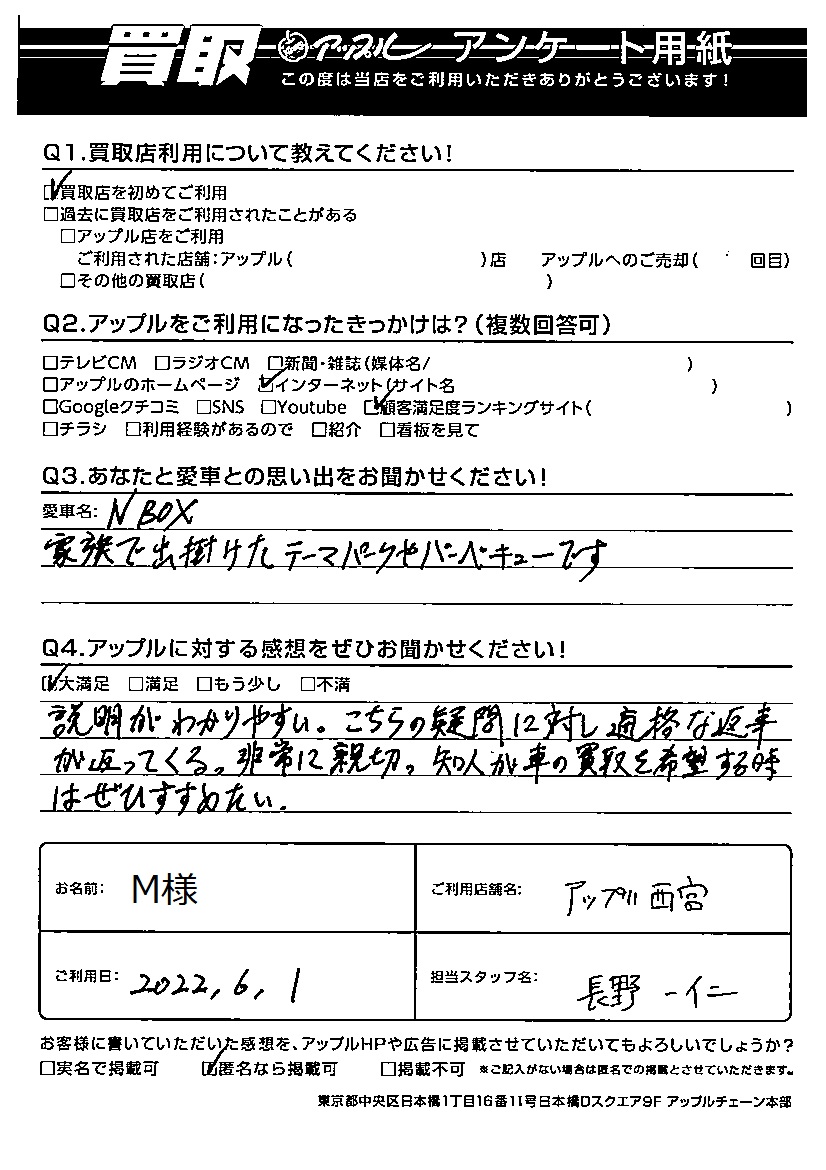 買取 アップル アンケート用紙
この度は当店をご利用いただきありがとうございます!
Q1.買取店利用について教えてください!
☑買取店を初めてご利用
□過去に買取店をご利用されたことがある
□アップル店をご利用
ご利用された店舗:アップル( )店 アップルへのご売却( 回目)
□その他の買取店( )
Q2.アップルをご利用になったきっかけは?(複数回答可)
□テレビCM □ラジオCM □新聞・雑誌(媒体名/ )
□アップルのホームページ ☑インターネット(サイト名 )
□Googleクチコミ □SNS □Youtube ☑顧客満足度ランキングサイト( )
□チラシ □利用経験があるので □紹介 □看板を見て
Q3.あなたと愛車との思い出をお聞かせください!
愛車名: N BOX
家族で出掛けたテーマパークやバーベキューです
Q4.アップルに対する感想をぜひお聞かせください!
☑大満足 □満足 □もう少し □不満
説明がわかりやすい。こちらの疑問に対し適格な返事
が返ってくる。非常に親切。知人が車の買取を希望する時
はぜひすすめたい。
お名前: M様 ご利用店舗名: アップル西宮
ご利用日: 2022, 6, 1 担当スタッフ名: 長野 一仁
お客様に書いていただいた感想を、アップルHPや広告に掲載させていただいてもよろしいでしょうか?
□実名で掲載可 ☑匿名なら掲載可 □掲載不可 ※ご記入がない場合は匿名での掲載とさせていただきます。
東京都中央区日本橋1丁目16番11号日本橋Dスクエア9F アップルチェーン本部